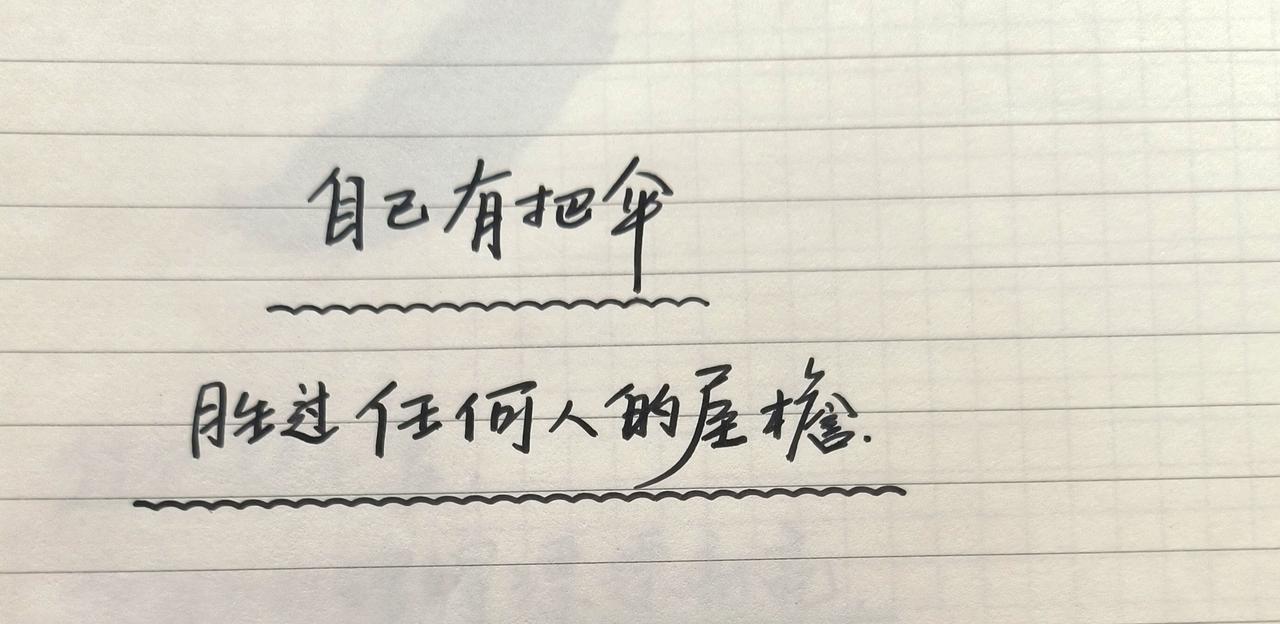 自己有把伞
胜过任何人的屋檐.